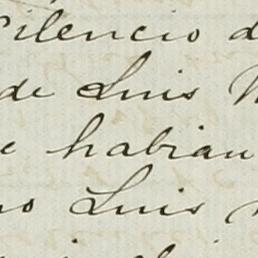 Silencio d
de Luis
e habian
no Luis